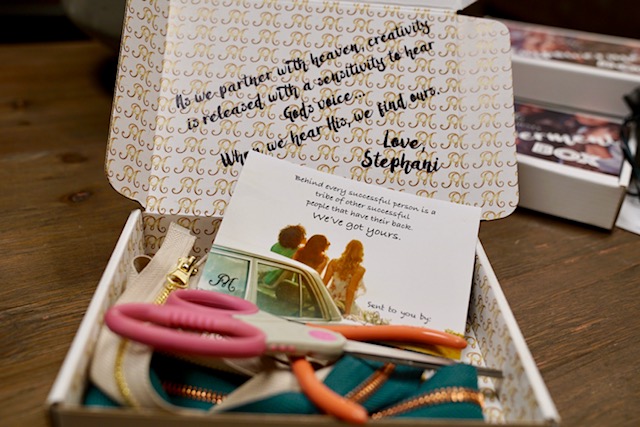 As we partner with heaven, creativity
is released with a sensitivity to hear
God's voice...
When we hear His, we find ours.
Love,
Stephani
Behind every successful person is a
tribe of other successful
people that have their back.
We've got yours.
Sent to you by:
BOX